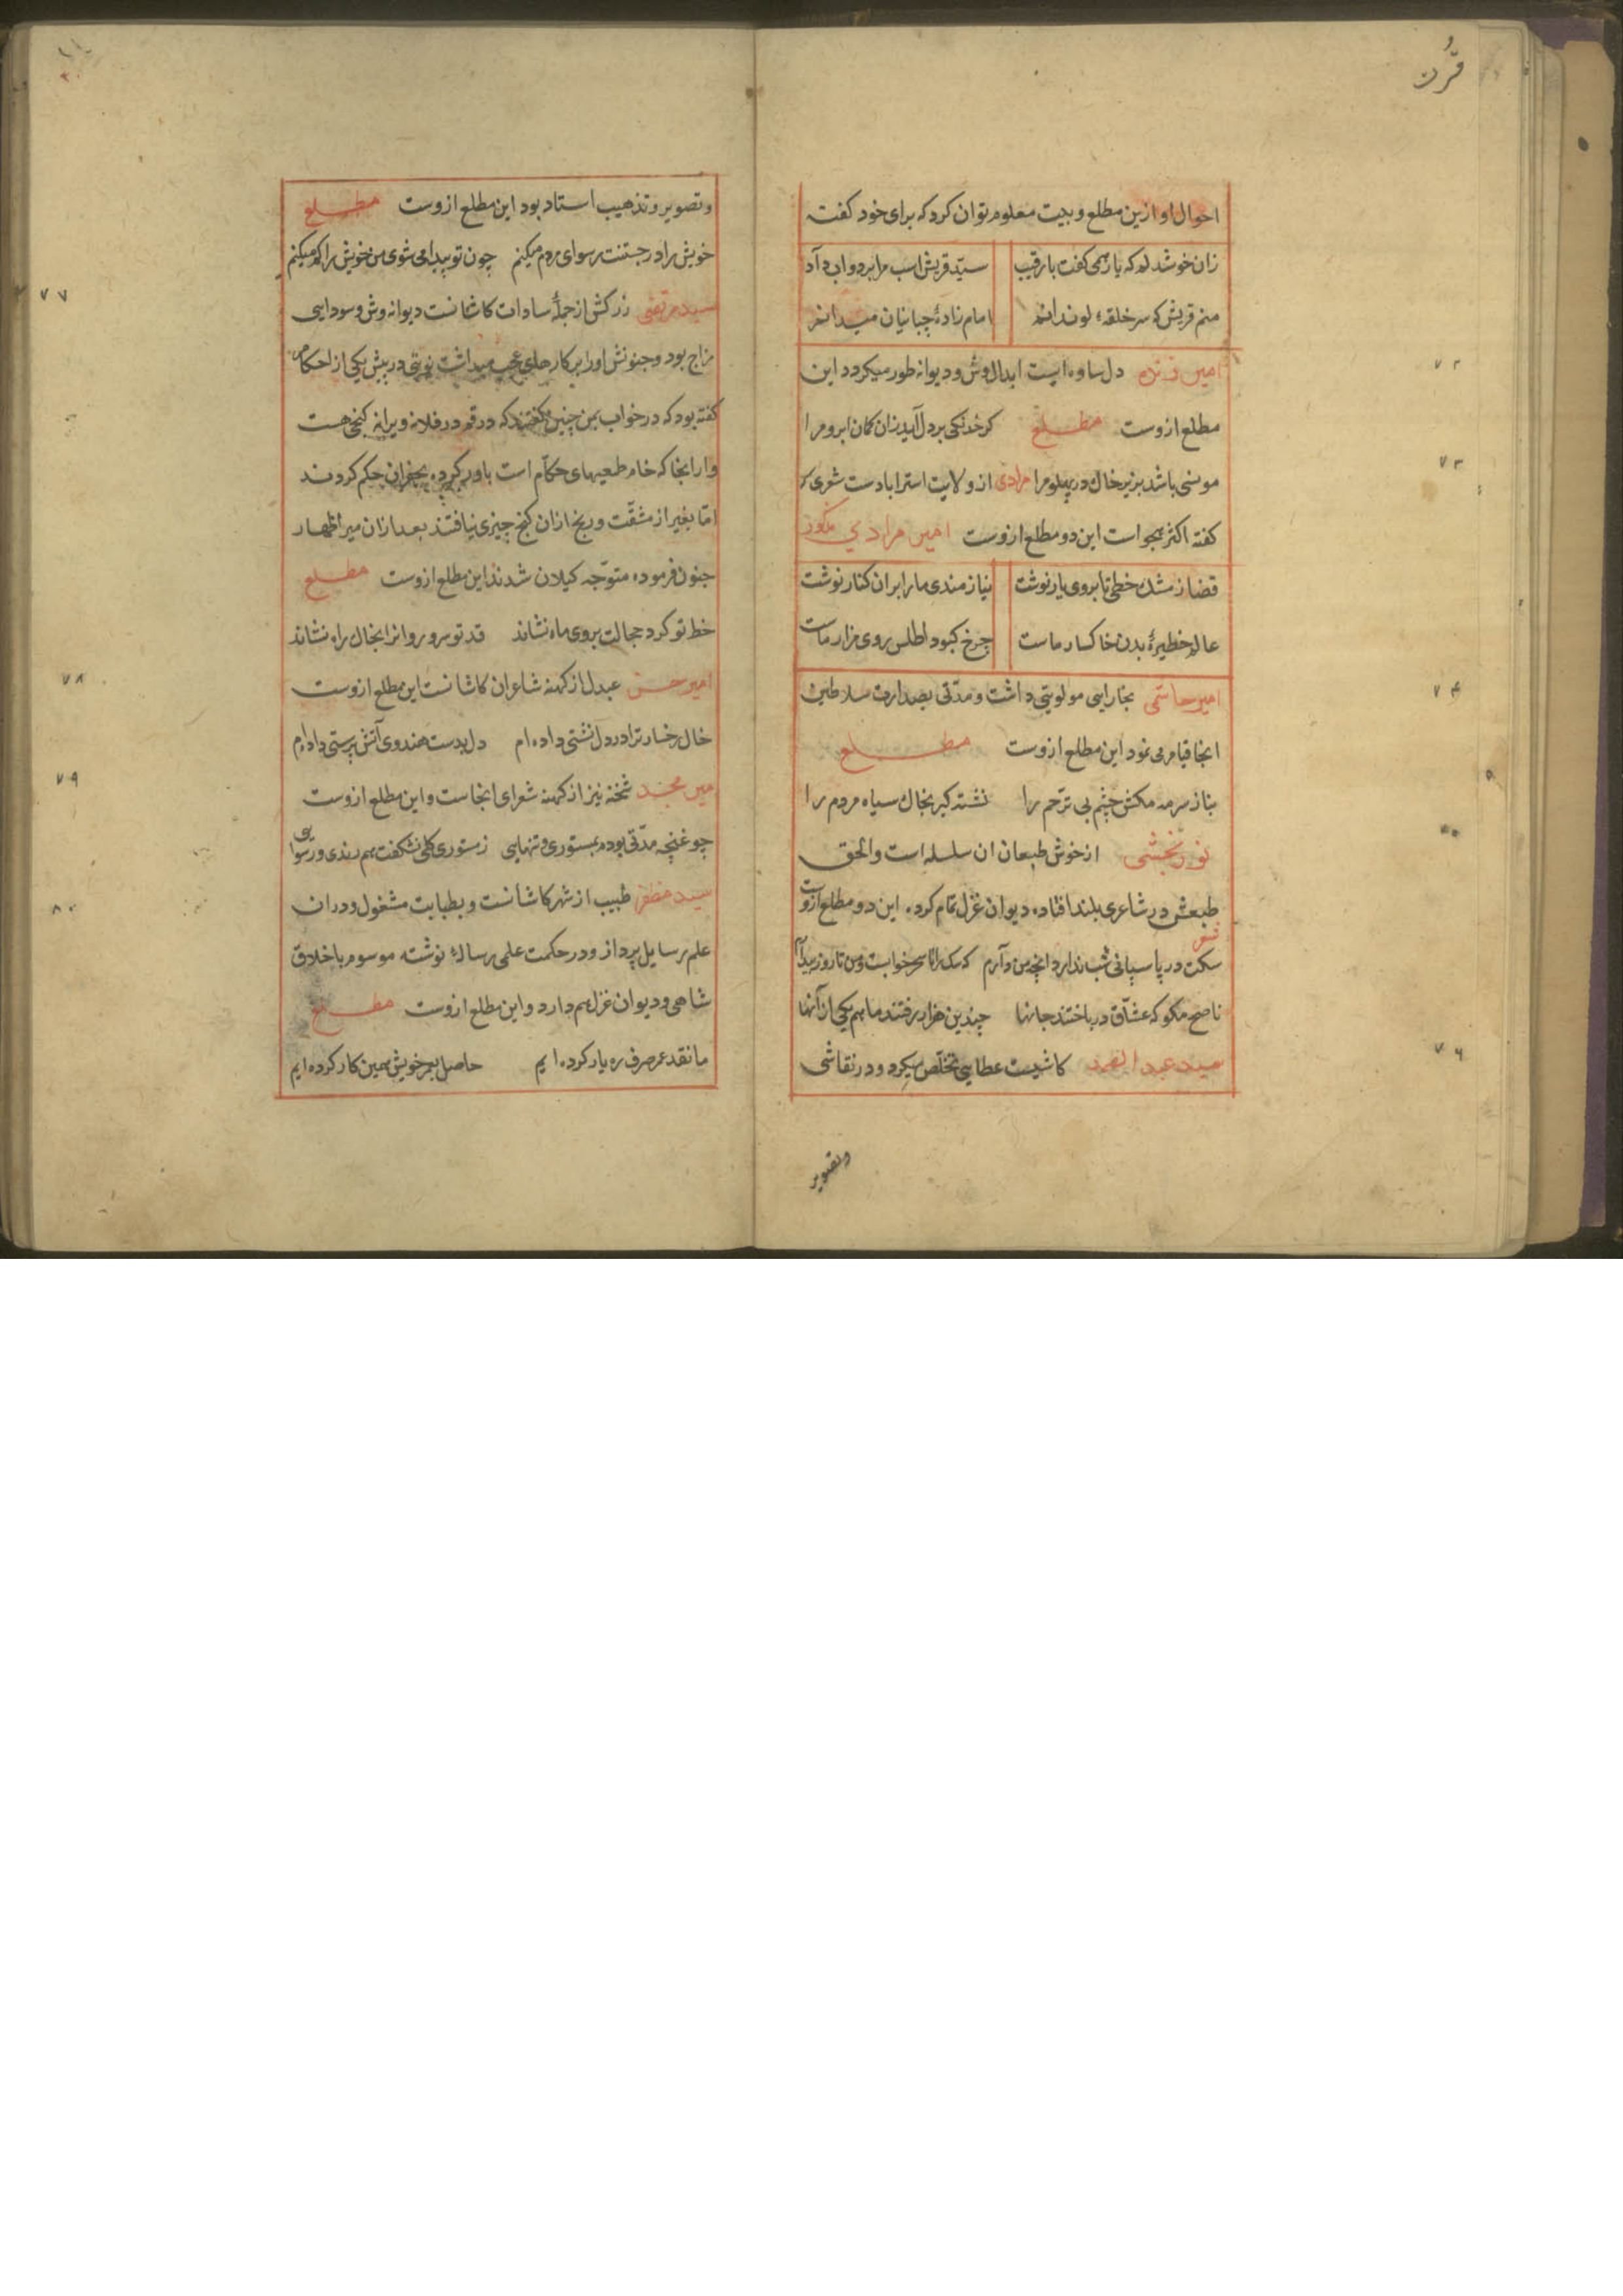 قرُت
احوال او ازین مطلع و بیت معلوم توان کرد که برای خود کفته
زان خوشدلم که یار همی کفت با رقیب سیّد قریش اسب مرا برد و اب داد
منم قریش که سر حلقهٔ لوندانم امام زادهٔ چبانیان میدانم
امیر زنده دل ساوه ایست ابدال وش و دیوانه طور میکردد این
مطلع ازوست مطلع کر خدنکی بر دل آید زان کمان ابرو مرا
مونسی باشد بزیر خاک در پهلو مرا مرادی از ولایت استراباد ست شعری که
کفته اکثر هجو است این دو مطلع ازوست امیر مرادی مکور
قضا ز مشک خطی تا بروی یار نوشت نیازمندی ما را بران کنار نوشت
عالم خطیرهٔ بدن خاکسار ماست چرخ کبود اطلس روی مزار ماست
امیر حاشمی بخارایی مولویتی داشت و مدّتی بصدارت سلاطین
انجا قیام می نمود این مطلع ازوست مطلع
بناز سرمه مکش چشم بی ترّحم را نشسته کیر بخاک سیاه مردم را
نوربخشی از خوش طبعان ان سلسله است والحق
طبعش در شاعری بلند افتاده دیوان غزل تمام کرده این دو مطلع ازوست
شعر
سکت در پاسبانی شب ندارد انچه من دارم که سک را تا سحر خوابست و من تا روز بیدارم
ناصح مکو که عشّاق در باختند جانها چندین هزار رفتند ما هم یکی از آنها
سید عبد الصمد کاشیست عطایی تخلّص میکرد و در نقاشی
وتصویر
وتصویر و تذهیب استاد بود این مطلع ازوست مطلع
خویش را در جستنت رسوای مردم میکنم چون تو پیدا می شوی من خویش را کم میکنم
سید مرتضی زرکش از جملهٔ سادات کاشانست دیوانه وش و سودایی
مزاج بود و جنونش اورا بر کارهای عجب میداشت نوبتی در پیش یکی از احکام
کفته بود که در خواب بمن چنین کفتند که در قم در فلانه ویرانه کنجی هست
و از انجا که خام طمعیهای حکّام است باور کرده بحفران حکم کردند
امّا بغیر از مشقّت و رنج ازان کنج چیزی نیافتند بعد ازان میر اظهار
جنون فرموده متوّجه کیلان شدند این مطلع ازوست مطلع
خط تو کرد خجالت بروی ماه نشاند قد تو سرو روانرا بخاک راه نشاند
امیر حسن عبدل از کهنه شاعران کاشانست این مطلع ازوست
خال رخسار ترا در دل نشتی داده ام دل بدست هندوی آتش پرستی داده ام
میر محمد شخنه نیز از کهنه شعرای انجاست و این مطلع ازوست
چو غنچه مدّتی بودم بمستوری و تنهایی ز مستوری کلی نشکفت هم رندی و رسوایی
سید مظفر طبیب از شهر کاشانست و بطبابت مشغول و دران
علم رسایل پرداز و در حکمت علمی رسالهٔ نوشته موسوم باخلاق
شاهی و دیوان غزل هم دارد و این مطلع ازوست مطلع
ما نقد عمر صرف ره یار کرده ایم حاصل بعمر خویش همین کار کرده ایم
۷۲
۷۳
۷۴
۷۶
۷۷
۷۸
۷۹
۸۰